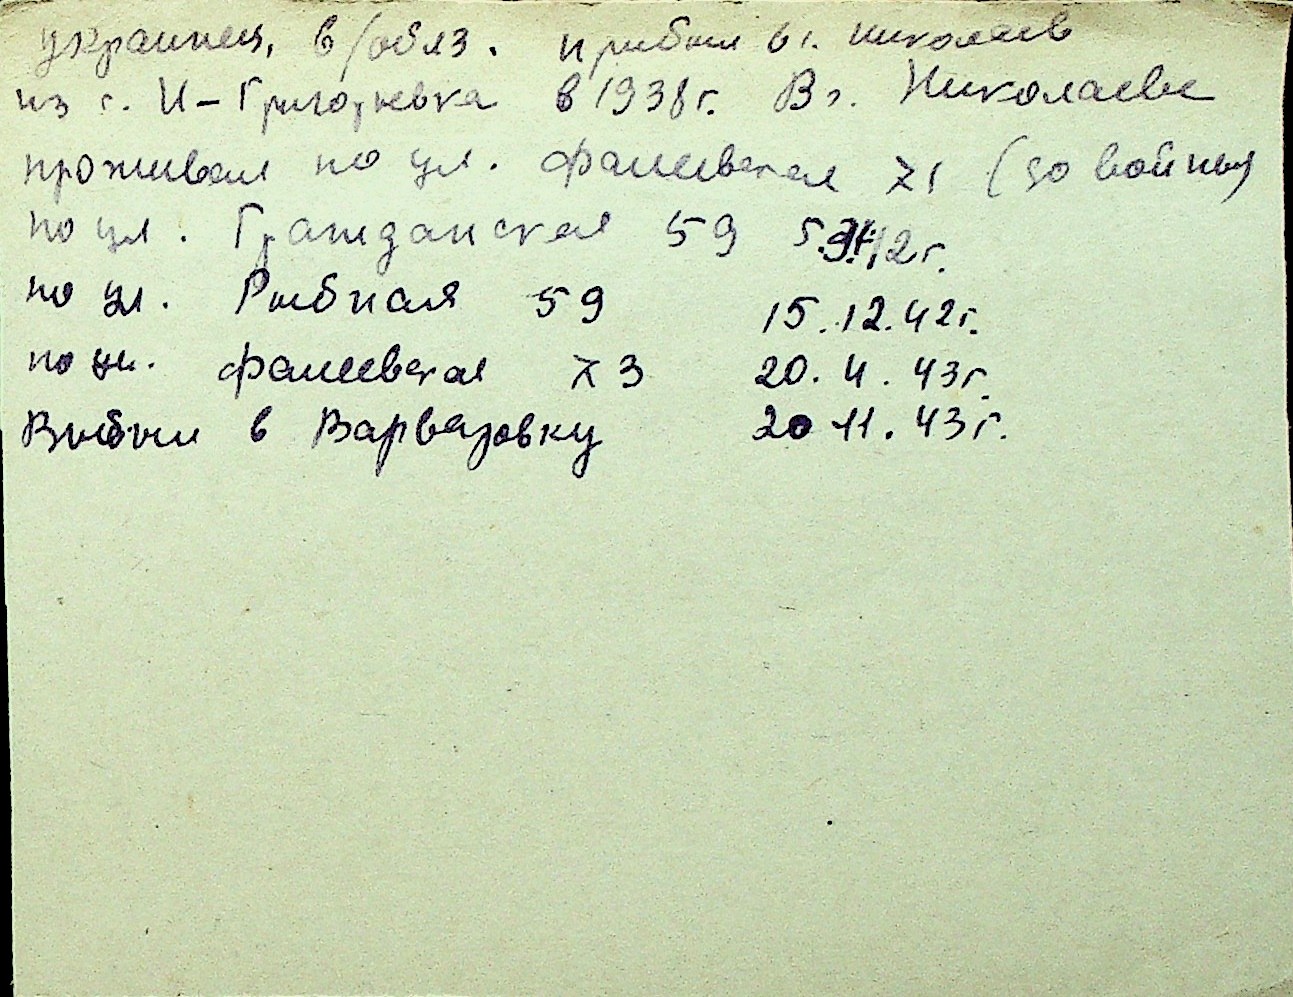 украинец, в/обяз. прибыл в г. Николаев
из г. И-Григорьевка в 1938 г. В г. Николаеве
проживал по ул. Фалеевская 71 (до войны)
по ул. Гражданская 59
по ул. Рыбная 59 15.12.42г.
по ул. Фалеевская 73 20.4.43г.
Выбыл в Варваровку 20 11.43г.